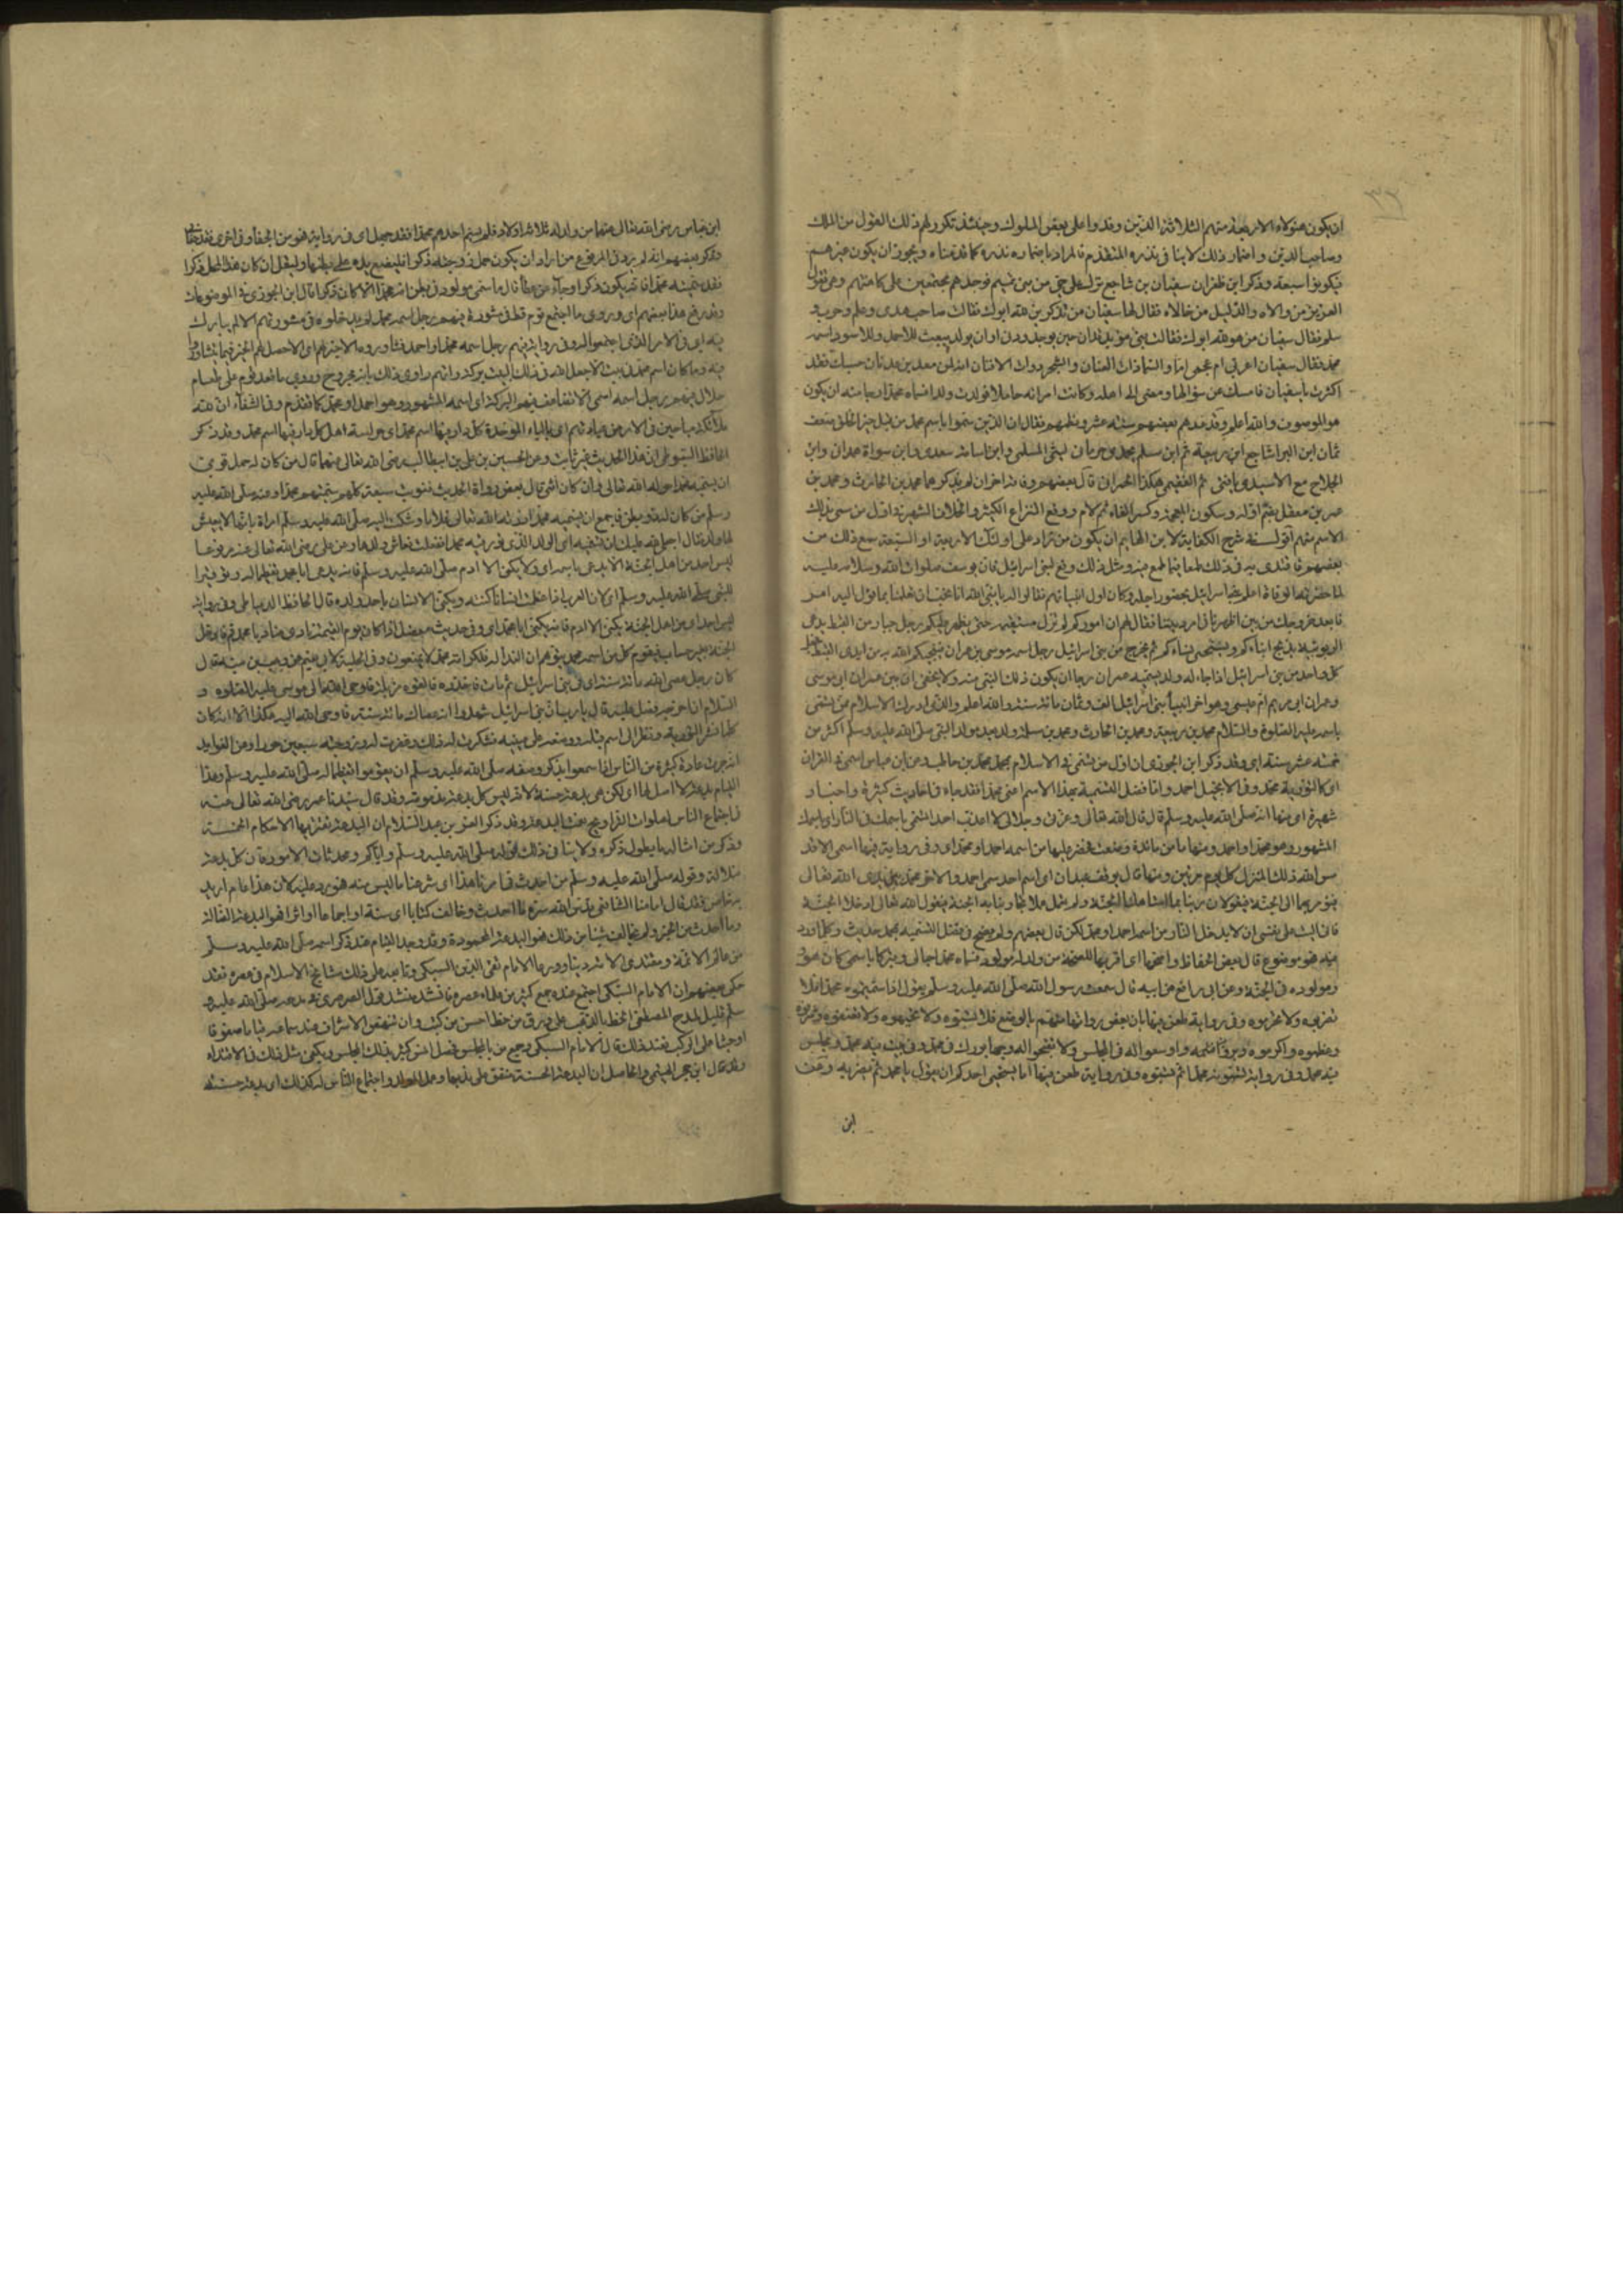 ان يكون هؤلاء الاربعة منهم الثلاثة الذين وفدوا على بعض الملوك وحينئذ تكرر لهم ذلك القول من الملك
وصاحب الدين واضمار ذلك لا ينافي نذره المتقدم فالمراد باضماره نذره كما قدمناه ويجوز ان يكون غيرهم
فيكونوا سبعة وذكر ابن ظفر ان سفيان بن مجاشع نزل على حي من بني تميم فوجدهم مجتمعين على كاهنتهم وهي تقول
العزيز من والاه والذليل من خالاه فقال لها سفيان من تذكرين لله ابوك فقالت صاحب هدى وعلم وحرب و
سلم فقال سفيان من هو لله ابوك فقالت نبي مؤيد قد آن حين يوجد ودنا اوان يولد يبعث للاحمر وللاسود اسمه
محمد فقال سفيان اعربي ام عجمي اما والسماء ذات العنان والشجر ذوات الافنان انه لمن معد بن عدنان حسبك فقد
اكثرت يا سفيان فامسك عن سؤالها ومضى الى اهله وكانت امرأته حاملا فولدت ولدا فسماه محمدا رجاء منه ان يكون
هو الموصوف والله اعلم وقد عدهم بعضهم ستة عشر ونظمهم فقال ان الذين سموا باسم محمد من قبل خير الخلق ضعف
ثمان ابن البراء مجاشع ابن ربيعة ثم ابن مسلم يحمدي حرمان ليثي السلمي وابن اسامة سعدي وابن سواة همدان وابن
الجلاح مع الاسيدي يا فتى ثم الفقيمي هكذا الحمران قال بعضهم وفاته اخران لم يذكرهما محمد بن الحارث ومحمد بن
عمر بن مغفل بضم اوله وسكون المعجمة وكسر الفاء ثم لام ووقع النزاع الكثير والخلاف الشهير في اول من سمي بذلك
الاسم منهم اقول في شرح الكفاية لابن الهائم ان يكون من زاد على اولئك الاربعة او السبعة سمع ذلك من
بعضهم فاقتدى به في ذلك طمعا فيما طمع فيه ومثل ذلك وقع لبني اسرائيل فان يوسف صلوات الله وسلامه عليه
لما حضرته الوفاة اعلم بني اسرائيل بحضور اجله وكان اول انبيائهم فقالوا له يا نبي الله انا نحب ان تعلمنا بما يؤل اليه امر
كل واحد من بني اسرائيل اذا جاء له ولد يسميه عمران رجاء ان يكون ذلك النبي منه ولا يخفى ان بين عمران ابي موسى
وعمران ابي مريم ام عيسى وهو اخر انبياء بني اسرائيل الف وثمان مائة سنة والله اعلم والذي ادرك الاسلام ممن تسمى
باسمه عليه الصلوة والسلام محمد بن ربيعة ومحمد بن الحارث ومحمد بن مسلمة ولد بعد مولد النبي صلى الله عليه وسلم اكثر من
خمسة عشر سنة اي وقد ذكر ابن الجوزي ان اول من تسمى في الاسلام بمحمد محمد بن حاطب وعن ابن عباس اسمي في القران
اي كالتورية محمد وفي الانجيل احمد واما فضل التسمية بهذا الاسم اعني محمدا فقد جاء في احاديث كثيرة واخبار
شهيرة اي منها انه صلى الله عليه وسلم قال قال الله تعالى وعزتي وجلالي لا اعذب احدا تسمى باسمك في النار اي باسمك
المشهور وهو محمد او احمد ومنها ما من مائدة وضعت فحضر عليها من اسمه احمد او محمد اي وفي رواية فيها اسمي الا قدس
الله ذلك المنزل كل يوم مرتين ومنها قال يوقف عبدان اي اسم احدهما احمد والاخر محمد بين يدي الله تعالى
فيؤمر بهما الى الجنة فيقولان ربنا بما استاهلنا الجنة ولم نعمل عملا تجازينا به الجنة فيقول الله تعالى ادخلا الجنة
فاني اليت على نفسي ان لا يدخل النار من اسمه احمد او محمد لكن قال بعضهم ولم يصح في فضل التسمية بمحمد حديث وكلما ورد
فيه فهو موضوع قال بعض الحفاظ واصحها اي اقربها للصحة من ولد له مولود فسماه محمدا حبا لي وتبركا باسمي كان هو
ومولوده في الجنة وعن ابي رافع عن ابيه قال سمعت رسول الله صلى الله عليه وسلم يقول اذا سميتموه محمدا فلا
تضربوه ولا تحرموه وفي رواية طعن فيها بان بعض رواتها متهم بالوضع فلا تسبوه ولا تجبهوه ولا تعنفوه وشرفوه
وعظموه واكرموه وبروا قسمه واوسعوا له في المجلس ولا تقبحوا له وجها بورك في محمد وفي بيت فيه محمد ومجلس
فيه محمد وفي رواية تسمونه محمدا ثم تسبوه وفي رواية طعن فيها اما يستحيي احدكم ان يقول يا محمد ثم يضربه وعن
ابن
ابن عباس رضي الله تعالى عنهما من ولد له ثلاثة اولاد فلم يسم احدهم محمدا فقد جهل اي في رواية فهو من الجفاء وفي اخرى فقد جفاني
وذكر بعضهم انه لم يرد في المرفوع من اراد ان يكون حمل زوجته ذكرا فليضع يده على بطنها وليقل ان كان هذا الحمل ذكرا
فقد سميته محمدا فانه يكون ذكرا وجاء عن عطاء قال ما سمي مولود في بطن امه محمدا الا كان ذكرا قال ابن الجوزي في الموضوعات
وقد رفع هذا بعضهم اي وروي ما اجتمع قوم قط في مشورة فيهم رجل اسمه محمد لم يدخلوه في مشورتهم الا لم يبارك
فيه اي في الامر الذي اجتمعوا له وفي رواية فيهم رجل اسمه محمد او احمد فشاوروه الا خير لهم اي الا حصل لهم الخير فيما تشاوروا
فيه وما كان اسم محمد في بيت الا جعل الله في ذلك البيت بركة واتهم راوي ذلك بانه مجروح وروي ما قعد قوم على طعام
حلال فيهم رجل اسمه اسمي الا تضاعف فيهم البركة اي اسمه المشهور وهو احمد او محمد كما تقدم وفي الشفاء ان لله
ملائكة سياحين في الارض عبادتهم اي بالباء الموحدة كل دار فيها اسم محمد اي حراسة اهل كل دار فيها اسم محمد وقد ذكر
الحافظ السيوطي ان هذا الحديث غير ثابت وعن الحسين بن علي بن ابي طالب رضي الله تعالى عنهما قال من كان له حمل فنوى
ان يسميه محمدا حوله الله تعالى وان كان انثى قال بعض رواة الحديث فنويت سبعة كلهم سميتهم محمدا وعنه صلى الله عليه
وسلم من كان له ذو بطن فاجمع ان يسميه محمدا رزقه الله تعالى غلاما وشكت اليه صلى الله عليه وسلم امرأة بانها لا يعيش
لها ولد فقال اجعلي لله عليك ان تسميه اي الولد الذي ترزقينه محمدا ففعلت فعاش ولدها وعن علي رضي الله تعالى عنه مرفوعا
ليس احد من اهل الجنة الا يدعى باسمه اي ولا يكنى الا ادم صلى الله عليه وسلم فانه يدعى ابا محمد تعظيما له وتوقيرا
للنبي صلى الله عليه وسلم اي لان العرب اذا عظمت انسانا كنته ويكنى الانسان باجل ولده قال الحافظ الدمياطي وفي رواية
ليس احد اي من اهل الجنة يكنى الا ادم فانه يكنى ابا محمد اي وفي حديث معضل اذا كان يوم القيمة نادى مناد يا محمد قم فادخل
الجنة بغير حساب فيقوم كل من اسمه محمد يتوهم ان النداء له فلكرامة محمد لا يمنعون وفي الحلية لابي نعيم عن وهب بن منبه قال
كان رجل عصى الله مائة سنة اي في بني اسرائيل ثم مات فاخذوه فالقوه في مزبلة فاوحى الله تعالى الى موسى عليه الصلوة و
السلام ان اخرجه فصل عليه قال يا رب ان بني اسرائيل شهدوا انه عصاك مائة سنة فاوحى الله اليه هكذا الا انه كان
كلما نشر التورية ونظر الى اسم محمد قبله ووضعه على عينيه فشكرت له ذلك وغفرت له وزوجته سبعين حوراء ومن الفوايد
انه جرت عادة كثيرة من الناس اذا سمعوا بذكر وصفه صلى الله عليه وسلم ان يقوموا تعظيما له صلى الله عليه وسلم وهذا
القيام بدعة لا اصل لها اي لكن هي بدعة حسنة لانه ليس كل بدعة مذمومة وقد قال سيدنا عمر رضي الله تعالى عنه
في اجتماع الناس لصلوات التراويح نعمت البدعة وقد ذكر العز بن عبد السلام ان البدعة تعتريها الاحكام الخمسة
وذكر من امثالها يطول ذكره ولا ينافي ذلك قوله صلى الله عليه وسلم واياكم ومحدثات الامور فان كل بدعة
ضلالة وقوله صلى الله عليه وسلم من احدث في امرنا هذا اي شرعنا ما ليس منه فهو رد عليه لان هذا عام اريد
به خاص فقد قال امامنا الشافعي قدس الله سره ما احدث وخالف كتابا اي سنة او اجماعا او اثرا فهو البدعة الضالة
وما احدث من الخير ولم يخالف شيئا من ذلك فهو البدعة المحمودة وقد وجد القيام عند ذكر اسمه صلى الله عليه وسلم
من عالم الامة ومقتدى الائمة دينا وورعا الامام تقي الدين السبكي وتابعه على ذلك مشايخ الاسلام في عصره فقد
حكى بعضهم ان الامام السبكي اجتمع عنده جمع كثير من علماء عصره فانشد منشد قول الصرصري في مدحه صلى الله عليه و
سلم قليل لمدح المصطفى الخط بالذهب على ورق من خط احسن من كتب وان تنهض الاشراف عند سماعه قياما صفوفا
او جثيا على الركب فعند ذلك قال الامام السبكي وجميع من بالمجلس فحصل انس كبير بذلك المجلس ويكفي مثل ذلك في الاقتداء
وقد قال ابن حجر الهيتمي والحاصل ان البدعة الحسنة متفق على ندبها وعمل المولد واجتماع الناس له كذلك اي بدعة حسنة